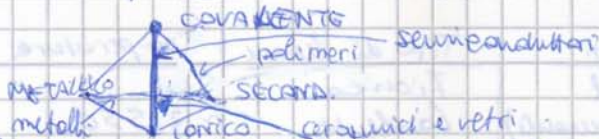 COVALENTE
polimeri semiconduttori
METALLICO SECOND.
metalli IONICO ceramici e vetri